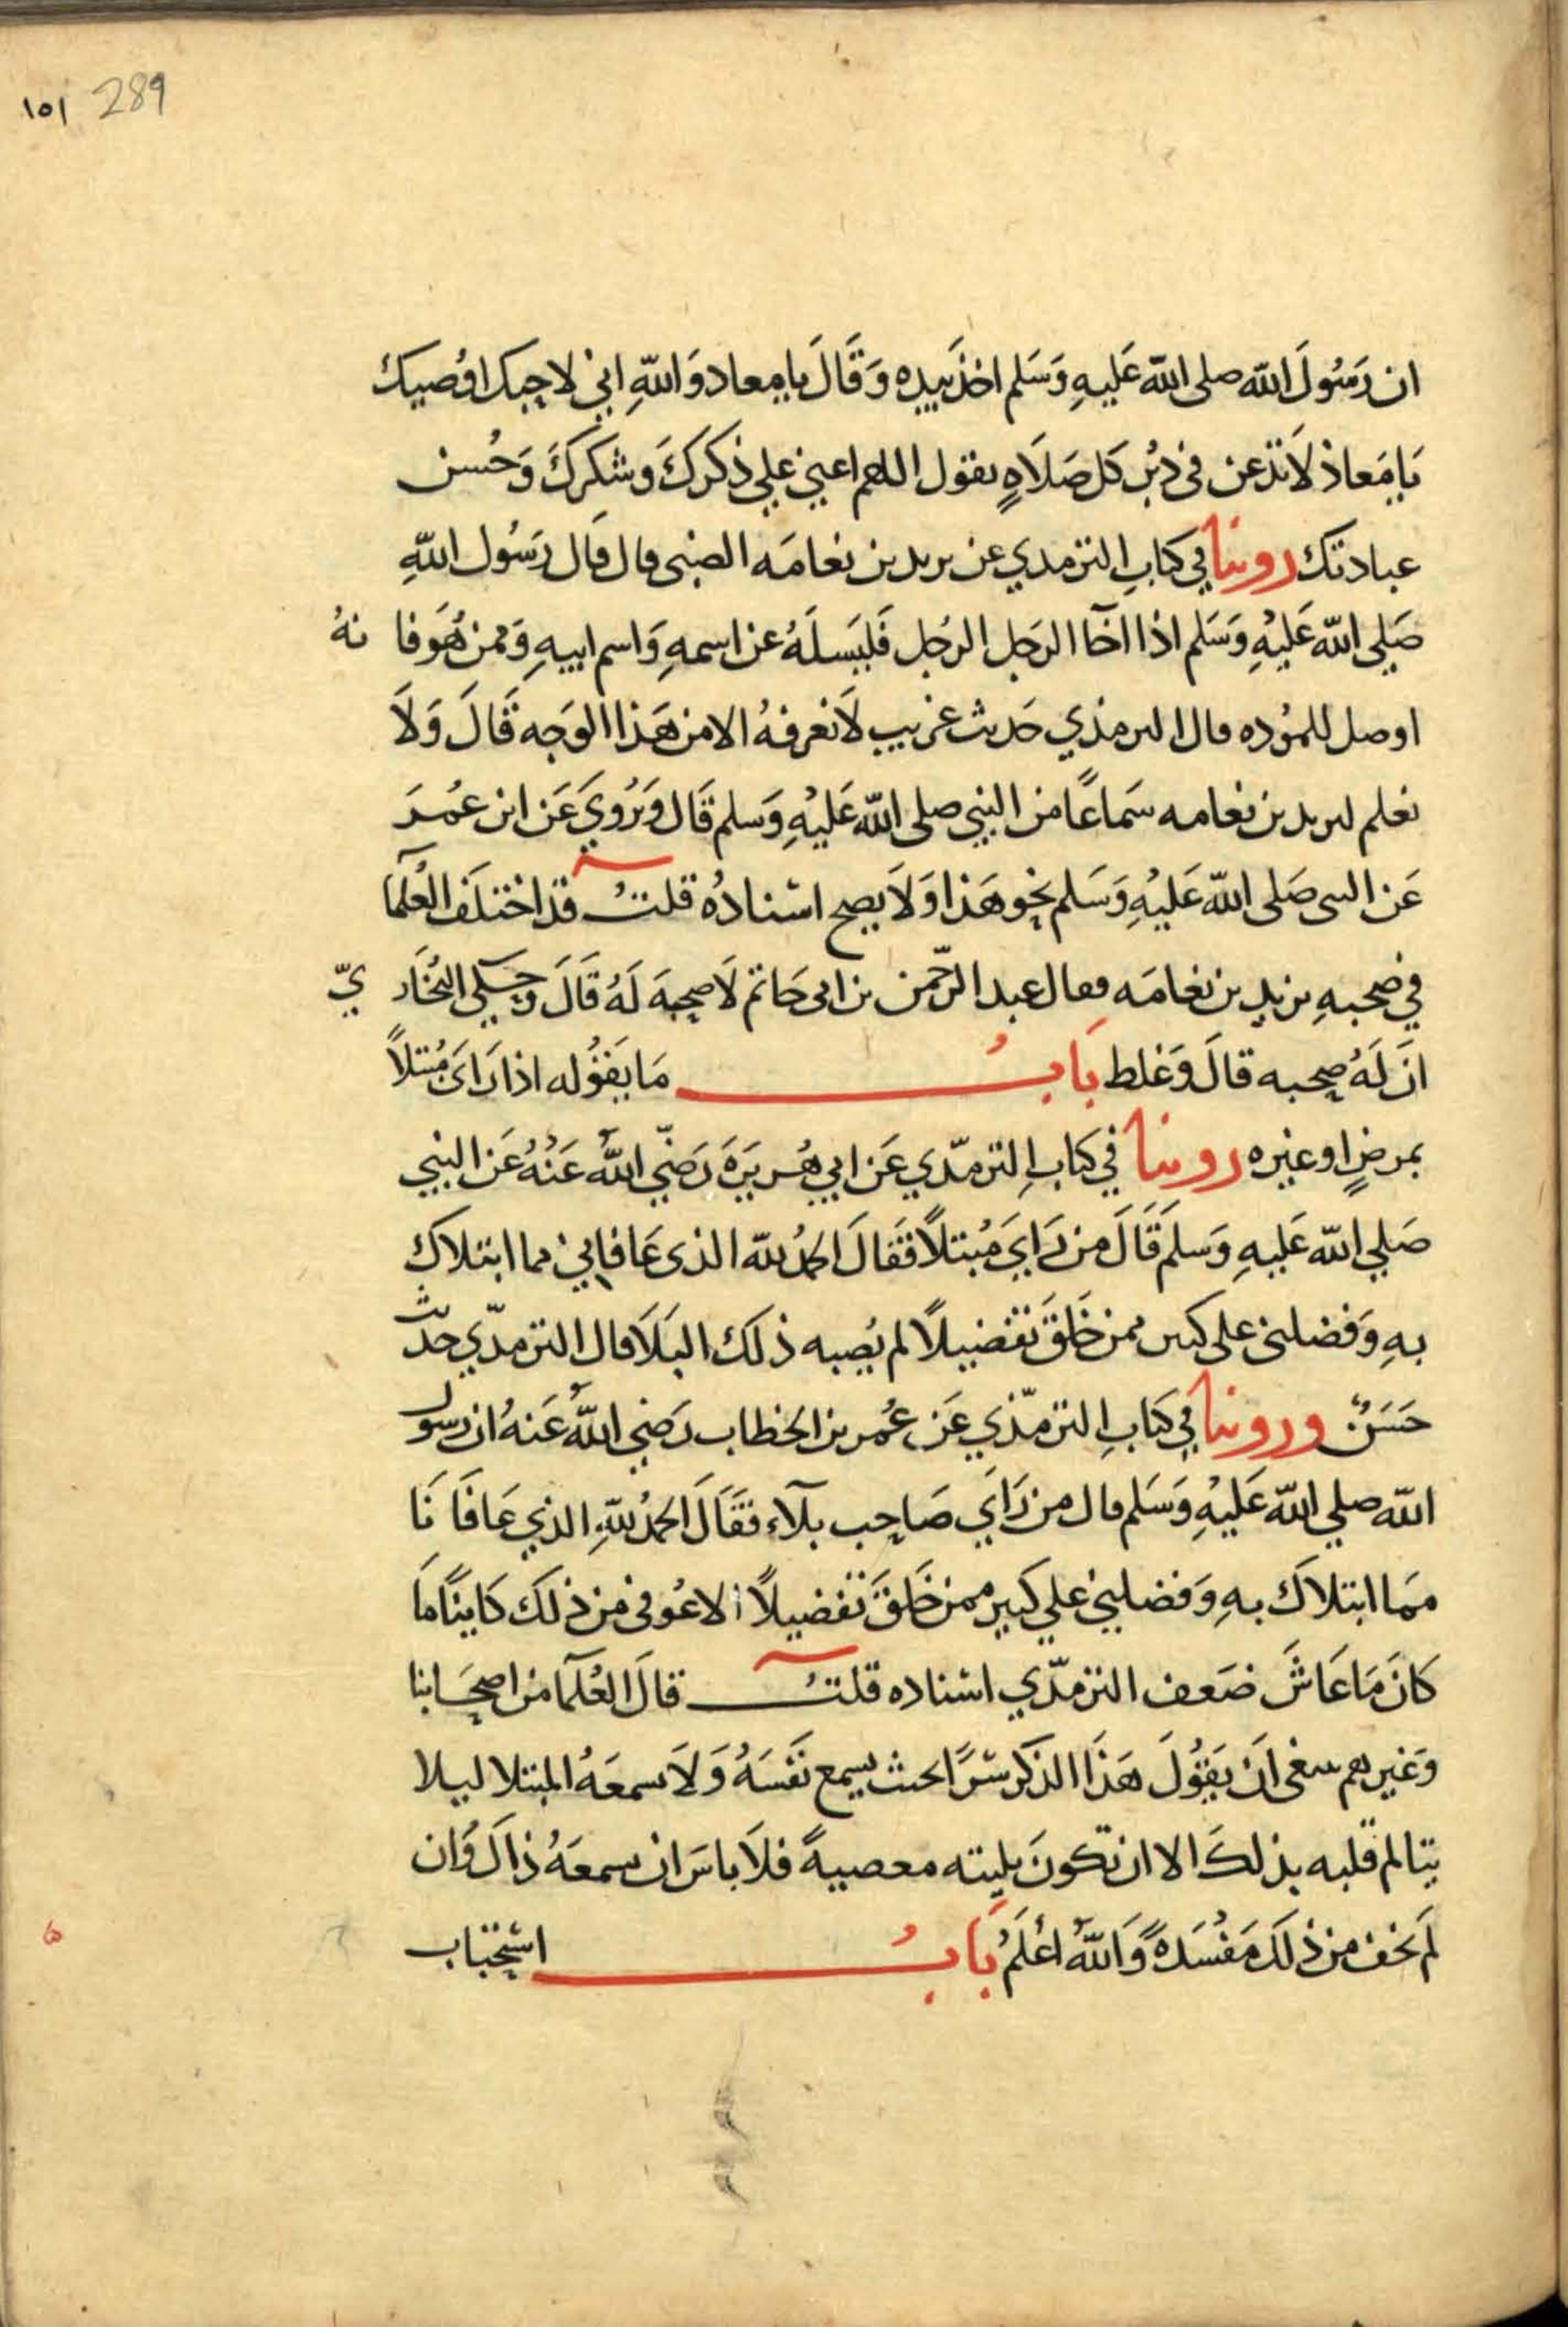 ١٥١ 289
ان رَسُولَ الله صلى الله عَليهِ وَسَلم اخذ بيده وَقَالَ يا معاد وَاللهِ اني لاحبك اوُصيك
يَا مَعاذ لَا تدعن في دبُر كل صَلَاهٍ تقول اللهم اعني علي ذكركَ وشكركَ وَحُسن
عبادتك روينا في كتابِ الترمدي عن يريد بن نعامَه الضبى قال قال رَسُول اللهِ
صَلي الله عَليْهِ وَسَلم اذا اخَا الرَجل الرجُل فَليَسلَهُ عن اسمهِ وَاسم ابيهِ وَممن هُوَ فا نهُ
اوصل للموُده قال الترمذي حَديث غريب لَا نعرفهُ الا من هَذا الوَجه قَالَ وَلَا
نعلم ليريد بن نعامه سَماعًا من النبي صلى الله عَليْهِ وَسلم قَال وَيرُويَ عَن ابن عمُرَ
عَن النبى صَلى الله عَليْهِ وَسَلم نحو هَذا وَلَا يصح اسْنادُه قلتُ قد اختلَف العُلَمَا
في صُحبهِ يزيد بن نعامَه فقال عبد الرّحمن بن ابى حَاتم لَا صحبهَ لَهُ قَالَ وَحَكي البُخَار يّ
انَ لَهُ صحبه قالَ وَغلط بَابُ مَا يَقوُله اذا رَاىَ مُبتلاً
بمرضٍ او غيره روينا في كتابِ الترمدّي عَن ابي هُريرَهَ رَضّي اللهُ عَنْهُ عَن النبي
صَلي الله عَليهِ وَسلَم قَالَ من رَايَ مُبتلاً فقَالَ الحمُد لله الذى عَافاني مما ابتلاك
بهِ وَفضلنى على كثير ممن خَلقَ تفضيلاً لم يُصبه ذلك البَلَا قال الترمدّي حديث
حَسَنٌ وروينا في كتابِ الترمّذي عَن عُمر بن الخطاب رَضي اللهُ عَنهُ ان رسول
الله صلي الله عَليْهِ وَسَلم قال من رَايَ صَاحِب بلَآء فقَالَ الحمُد للهِ الذي عَافَا نَا
ممَا ابتلاكَ بهِ وَفضلني علي كثير ممن خَلقَ تفضيلاً الا عُوفى من ذلكَ كاينًا مَا
كانَ مَا عَاشَ ضعَف الترمدّي اسْناده قلتُ قالَ العُلَمَا من اصحَابنا
وَغيرهم ينبغى انَ يَقوُلَ هَذَا الذكر سرًا بحيث يسمع نَفسَهُ وَلَا يسمعَهُ المبتلا ليلا
يتالم قلبه بذلكَ الا ان تكونَ بليته معصيهً فلَا باسَ ان يسمعَهُ ذاكَ وَان
لَم يخف من ذلك مَفسَدهً وَاللهُ اعْلَمُ بَابُ استحباب